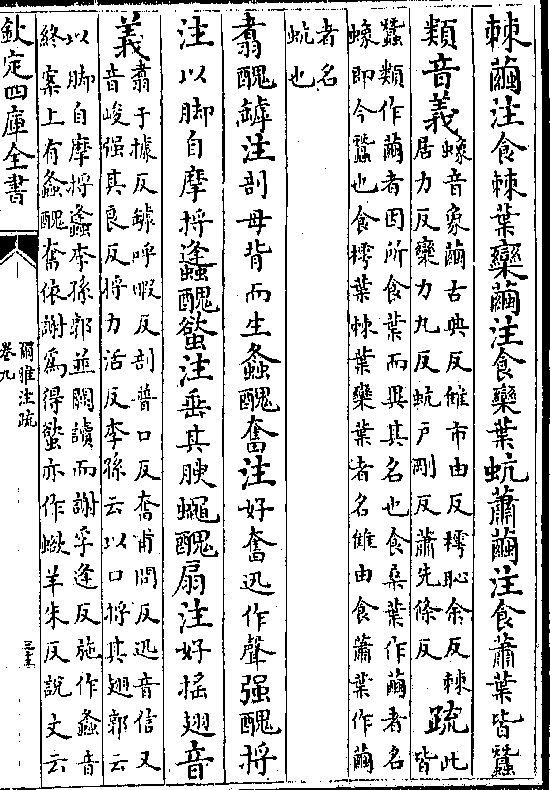 棘繭注食棘葉欒繭注食欒葉蚢蕭繭注食蕭葉皆蠶
類音義
蟓音象繭古典反雔市由反樗恥余反棘
居力反欒力九反蚢戸剛反蕭先條反
疏
此
皆
蠶類作繭者因所食葉而異其名也食桑葉作繭者名
蟓即今蠶也食樗葉棘葉欒葉者名雔由食蕭葉作繭
者名
蚢也
翥醜罅注剖母背而生螽醜奮注好奮迅作聲强醜捋
注以脚自摩捋蠭醜螸注垂其腴蠅醜扇注好搖翅音
義
翥于據反罅呼暇反剖普口反奮甫問反迅音信又
音峻强其良反捋力活反李孫云以口捋其翅郭云
以脚自摩捋螽李孫郭並闕讀而謝孚逢反施作螽音
終案上有螽醜奮依謝爲得螸亦作蝓羊朱反說文云
欽定四庫全書
爾雅注疏
卷九